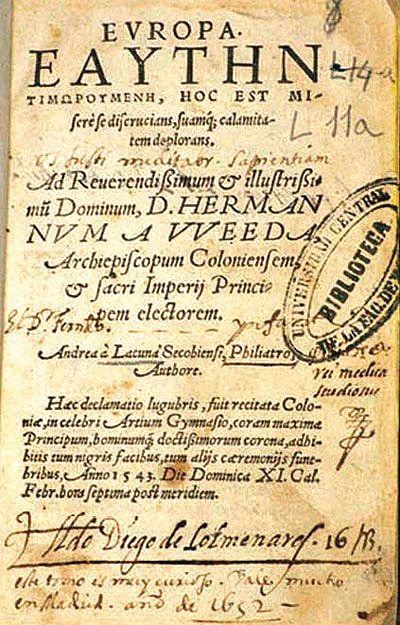 EVROPA.
ΕΑΥΤΗΝ-
ΤΙΜΩΡΟΥΜΕΝΗ, HOC EST MI-
serè se discrucians, suamq; calamita-
tem deplorans.
L 11a
Os justi meditaor. Sapientiam
Ad Reuerendißimum & illustrißi-
mũ Dominum, D. HERMAN
NVM A VVEEDA
Archiepiscopum Coloniensem,
& sacri Imperij Princi-
pem electorem.
Andrea à Lacuna Secobiense, Philiatro,
Authore.
rei medica
studiosus
UNIVERSIDAD CENTRAL
BIBLIOTECA
DE LA FAC. DE
Hæc declamatio lugubris, fuit recitata Colo-
niæ, in celebri Artium Gymnasio, coram maxima
Principum, hominumq; doctißimorum corona, adhi-
bitis tum nigris facibus, tum alijs cæremonijs fune-
bribus, Anno 1543. Die Dominica XI. Cal.
Febr. hora septima post meridiem.
Diego de Colmenares. 16
este trato es muy curioso. Vale mucho
en Madrid. año de 1652 -